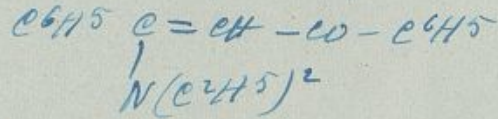 C⁶H5 C = CH - CO - C⁶H5
|
N(C²H5)²